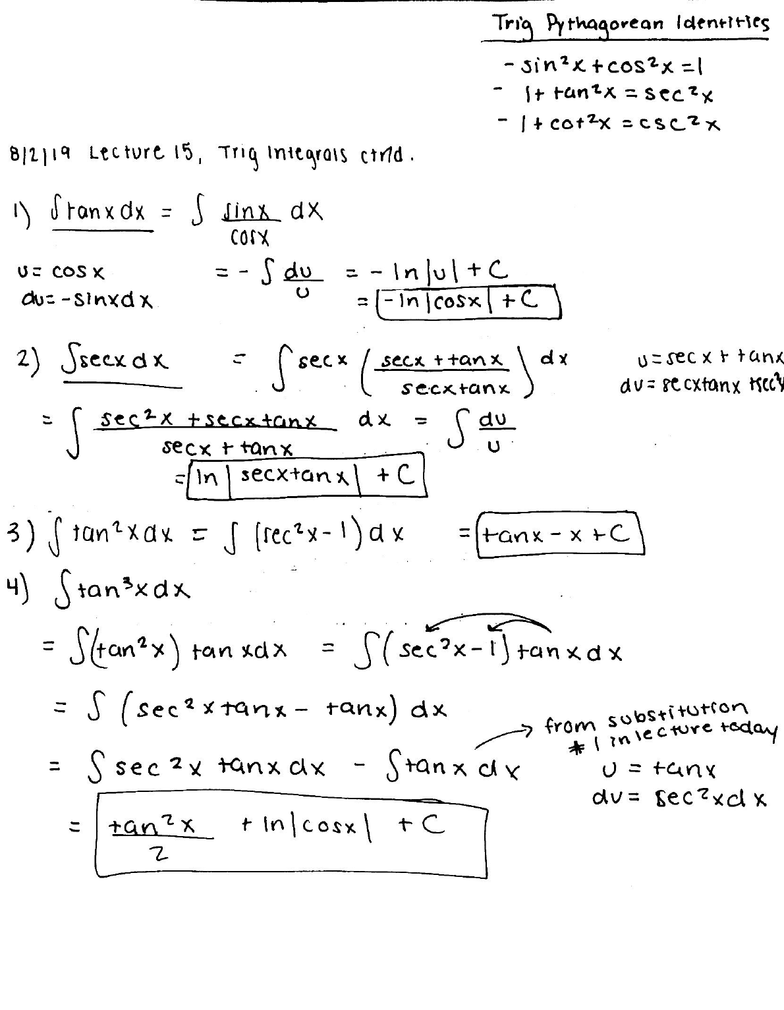 Trig Pythagorean Identities
- sin²x + cos²x = 1
- 1 + tan²x = sec²x
- 1 + cot²x = csc²x
8/2/19 Lecture 15, Trig Integrals ctnd.
1) ∫tanx dx = ∫ sinx/cosx dx
u = cosx = -∫ du/u = -ln|u| + C
du = -sinxdx = -ln|cosx| + C
2) ∫secx dx = ∫ secx (secx + tanx / secxtanx) dx u = secx + tanx
du = secxtanx + sec²x
= ∫ sec²x + secxtanx / secx + tanx dx = ∫ du/u
= ln|secxtanx| + C
3) ∫tan²xdx = ∫(sec²x - 1)dx = tanx - x + C
4) ∫tan³xdx
= ∫(tan²x) tanxdx = ∫(sec²x - 1)tanxdx
= ∫(sec²xtanx - tanx) dx
from substitution
#1 in lecture today
= ∫sec²x tanxdx - ∫tanx dx u = tanx
du = sec²xdx
= tan²x/2 + ln|cosx| + C